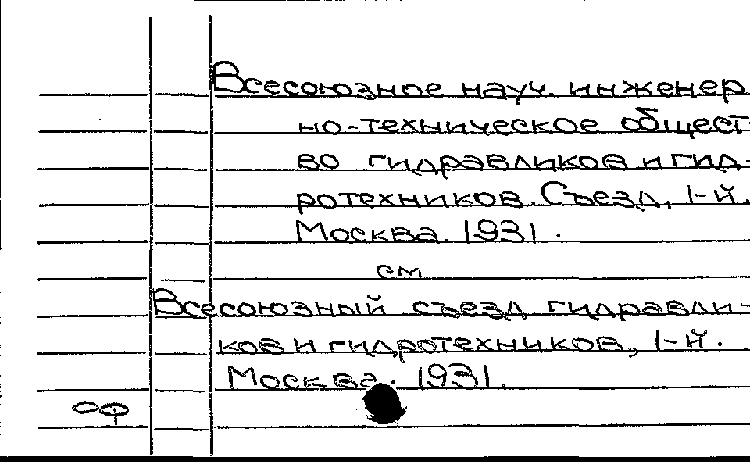 Всесоюзное науч. инженер
но-техническое общест
во гидравликов и гид-
ротехников. Съезд, 1-й.
Москва. 1931.
см
Всесоюзный съезд гидравли-
ков и гидротехников, 1-й.
Москва. 1931.